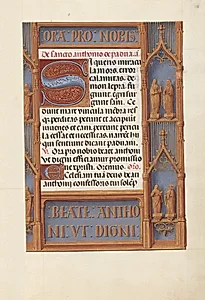 ORA PRO NOBIS
De sancto anthonio de padua
Si queris miracula
mors, error
calamitas, de
mon lepra fu
giunt, egri sur
gunt sani. Ce
dunt mare vincula membra res
que perditas petunt et accipiunt
iuvenes et cani, pereunt pericu
la cessat et necessitas, narrent hii
qui sentiunt dicant paduani.
Ora pro nobis beate anthoni
Ut digni efficiamur promissio
Oremus.
Ecclesiam tuam deus beati
anthonii confessoris tui
BEATE ANTHO
NI VT DIGNI